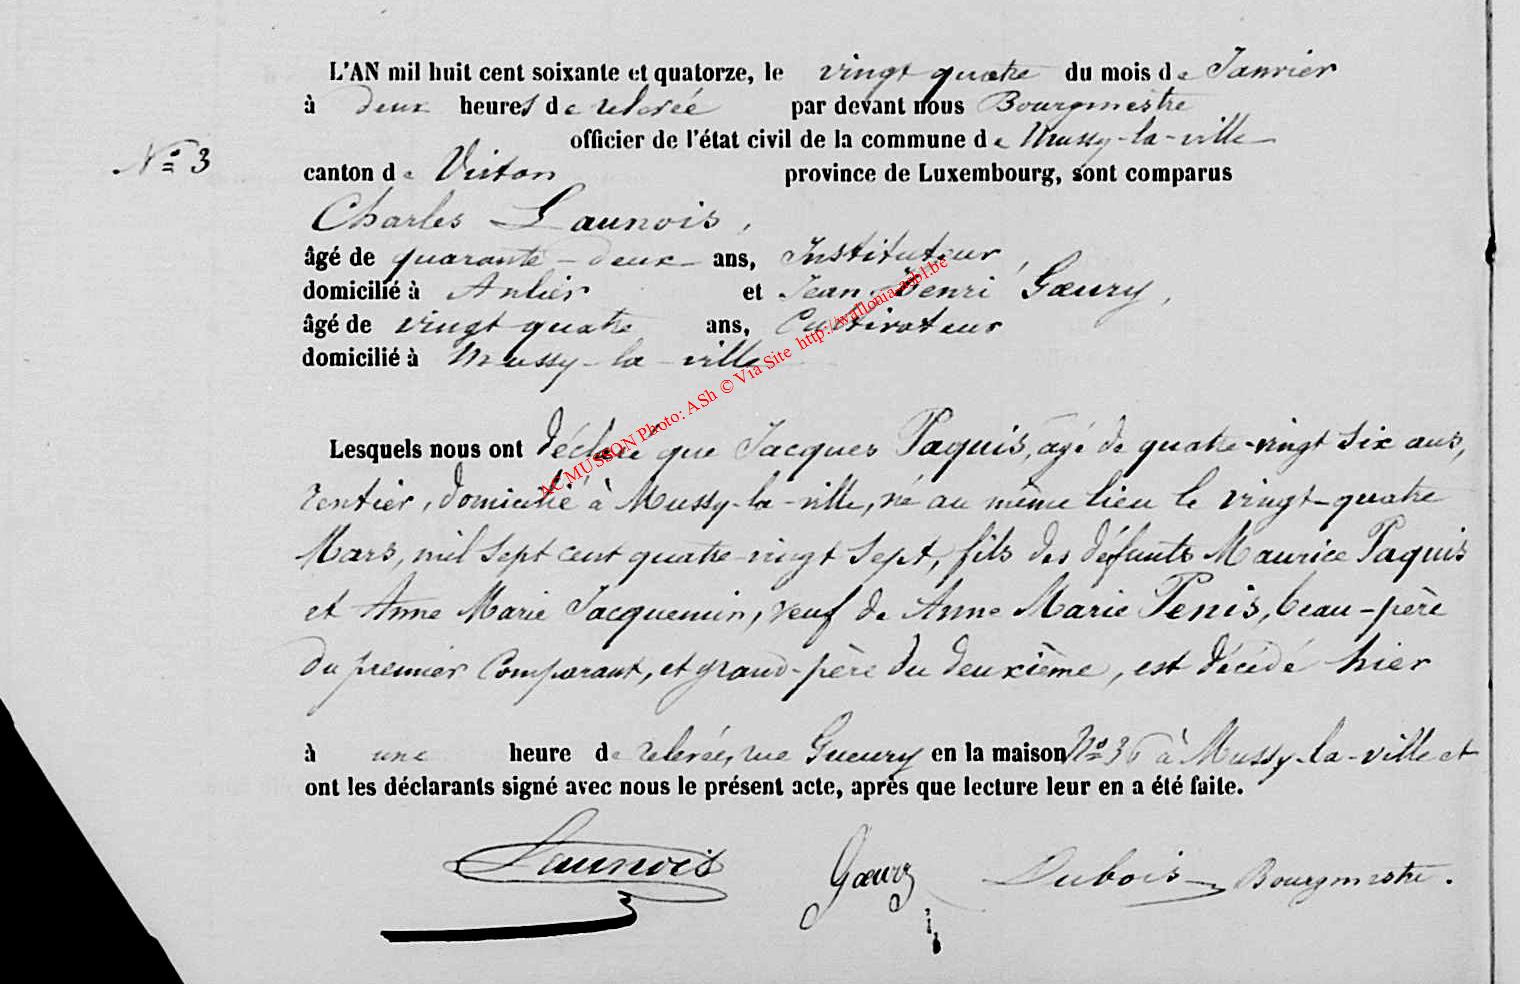 L'AN mil huit cent soixante et quatorze, le vingt quatre du mois de Janvier
à deux heures de relevée par devant nous Bourgmestre
officier de l'état civil de la commune de Mussy-la-ville
N° 3
canton de Virton province de Luxembourg, sont comparus
Charles Launois,
âgé de quarante-deux ans, Instituteur,
domicilié à Anlier et Jean Henri Gœury,
âgé de vingt quatre ans, Cultivateur
domicilié à Mussy-la-ville
Lesquels nous ont déclaré que Jacques Paquis, agé de quatre-vingt six ans,
rentier, domicilié à Mussy-la-ville, né au même lieu le vingt-quatre
Mars, mil sept cent quatre-vingt sept, fils des défunts Maurice Paquis
et Anne Marie Jacquemin, veuf de Anne Marie Penis, beau-père
du premier Comparant, et grand-père du deuxième, est décédé hier
à une heure de relevée, rue Gueury en la maison N° 36 à Mussy-la-ville et
ont les déclarants signé avec nous le présent acte, après que lecture leur en a été faite.
Launois Gœury Dubois Bourgmestre.
ACMUSSON Photo: ASh © Via Site http://wallonia-asbl.be